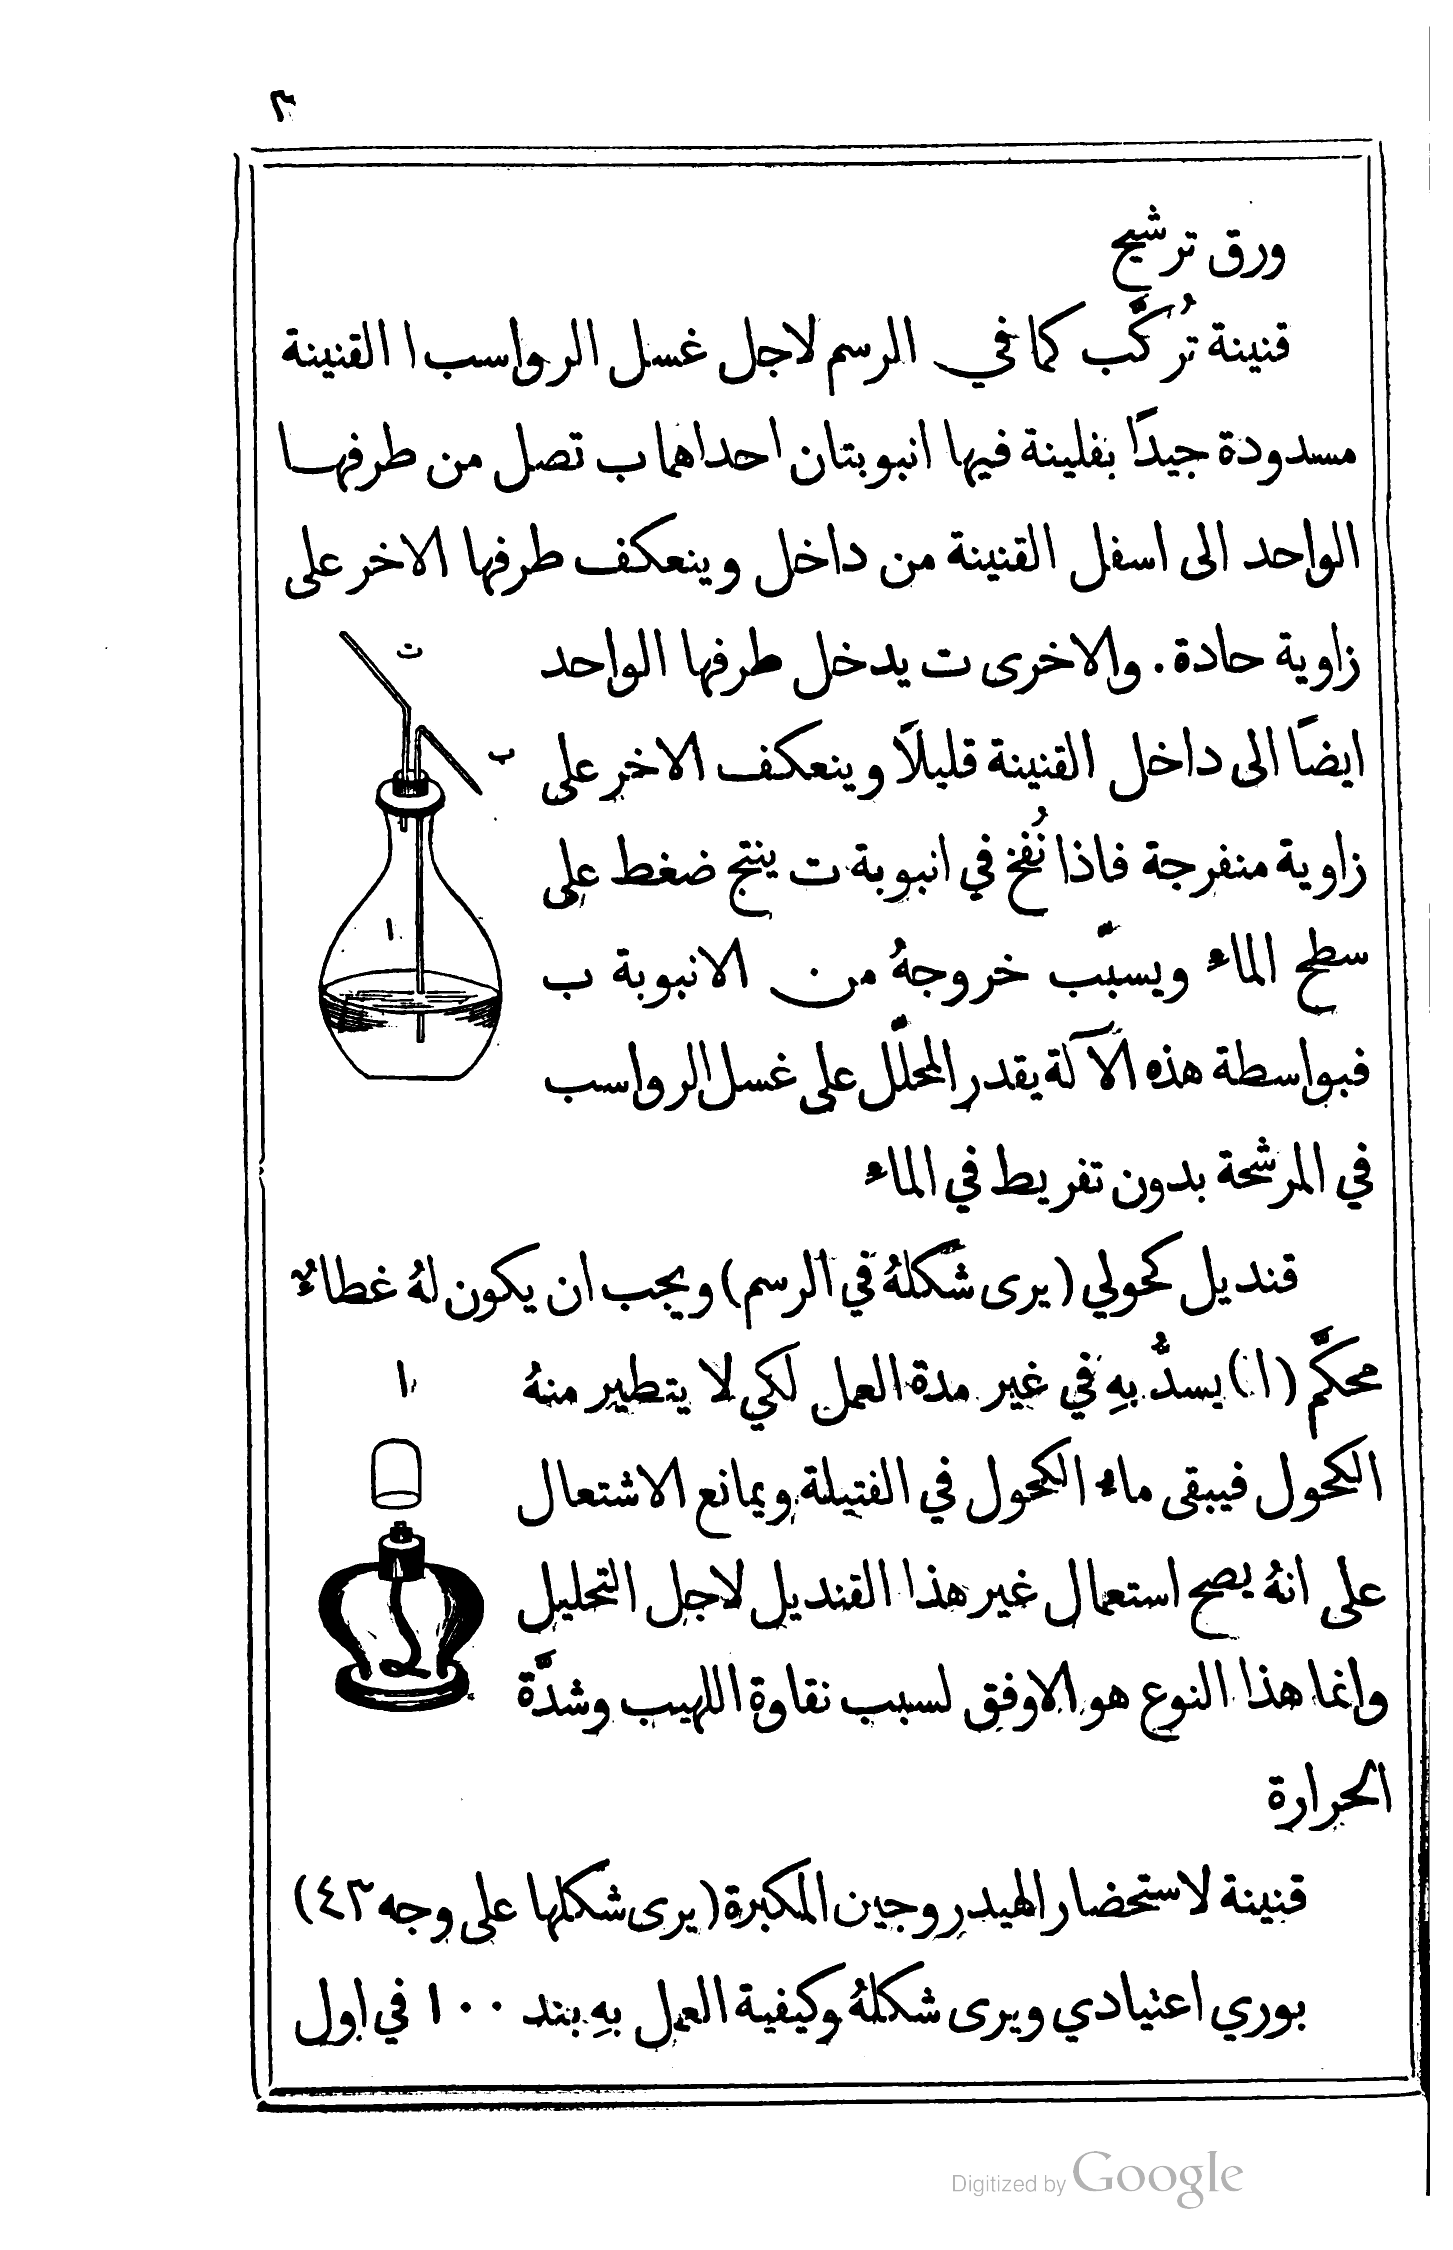 ٣
ورق ترشيح
قنينة تُركَّب كما في الرسم لاجل غسل الرواسب ا القنينة
مسدودة جيدًا بفلينة فيها انبوبتان احداهما ب تصل من طرفها
الواحد الى اسفل القنينة من داخل وينعكف طرفها الاخر على
زاوية حادة. والاخرى ت يدخل طرفها الواحد
ايضًا الى داخل القنينة قليلًا وينعكف الاخر على
زاوية منفرجة فاذا نُفخ في انبوبة ت ينتج ضغط على
سطح الماء ويسبّب خروجهُ من الانبوبة ب
فبواسطة هذه الآلة يقدر المحلّل على غسل الرواسب
في المرشحة بدون تفريط في الماء
ت
ب
ا
قنديل كحولي (يرى شكلهُ في الرسم) ويجب ان يكون لهُ غطاءٌ
محكَّم (ا) يسدُّ بهِ في غير مدة العمل لكي لا يتطير منهُ
الكحول فيبقى ماء الكحول في الفتيلة ويمانع الاشتعال
على انهُ يصح استعمال غير هذا القنديل لاجل التحليل
وانما هذا النوع هو الاوفق لسبب نقاوة اللهيب وشدَّة
الحرارة
ا
قنينة لاستحضار الهيدروجين المكبرة (يرى شكلها على وجه ٤٣)
بوري اعتيادي ويرى شكلهُ وكيفية العمل بهِ بند ١٠٠ في اول
Digitized by Google